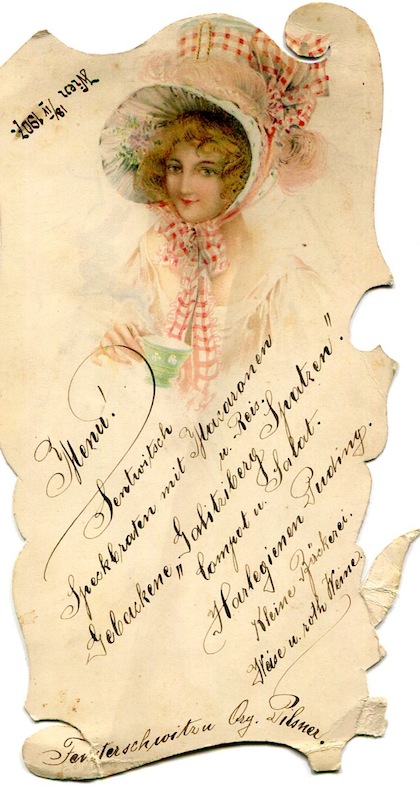 Wien
18/IV 1907.
Menu!
Sentwitsch
Speckbraten mit Macaronen
u. Reis.
Gebackene „Galitziberg Spatzen".
Compot u. Salat.
Harlegienen Puding.
Kleine Bäckerei.
Weise u. roth Weine.
Fensterschwitzu Org. Pilsner.